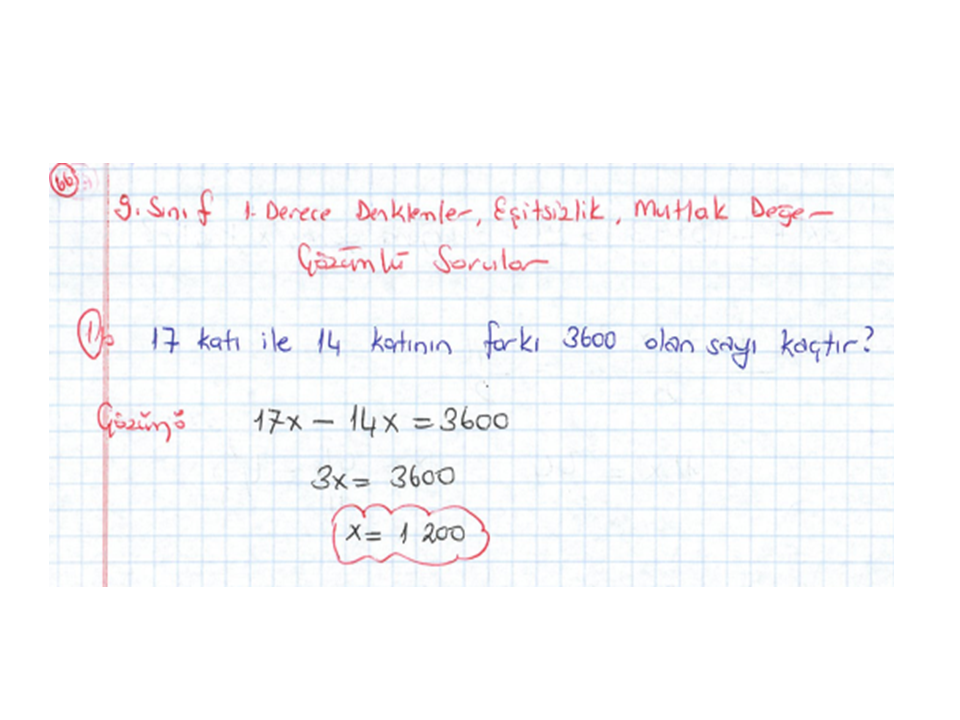 66
9. Sınıf 1. Derece Denklemler, Eşitsizlik, Mutlak Değer
Çözümlü Sorular
1) 17 katı ile 14 katının farkı 3600 olan sayı kaçtır?
Çözüm: 17x - 14x = 3600
3x = 3600
x = 1 200